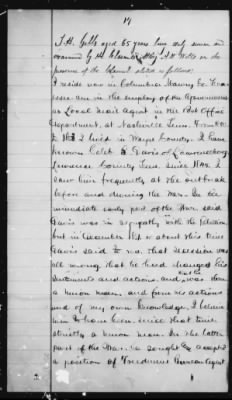 17
J. H. Gibbs aged 65 years being duly sworn and
examined by H. Atty. F. H. on the
presence of the Claimant stated as follows:
I reside now in Columbia Maury Co. Tenn
essee. am in the employ of the Government
as Local Mail Agent in the Post Office
Department, at Nashville Tenn. From
to 1862 I lived in Wayne County. I have
known Caleb B. Davis of Lawrenceburg
Lawrence County Tenn. since 1842. I
saw him frequently at the outbreak
before and during the War. In the
immediate early part of the War said
Davis was in sympathy with the Rebellion
but in December 1861 or about that time
Davis said to me that Secession was
all wrong that he had changed his
sentiments and actions, and that he was then
a Union man, and from his actions
and of my own knowledge, I believe
him to have been since that time
strictly a Union man. In the latter
part of the War he sought and accepted
a position of Freedmens Bureau Agent